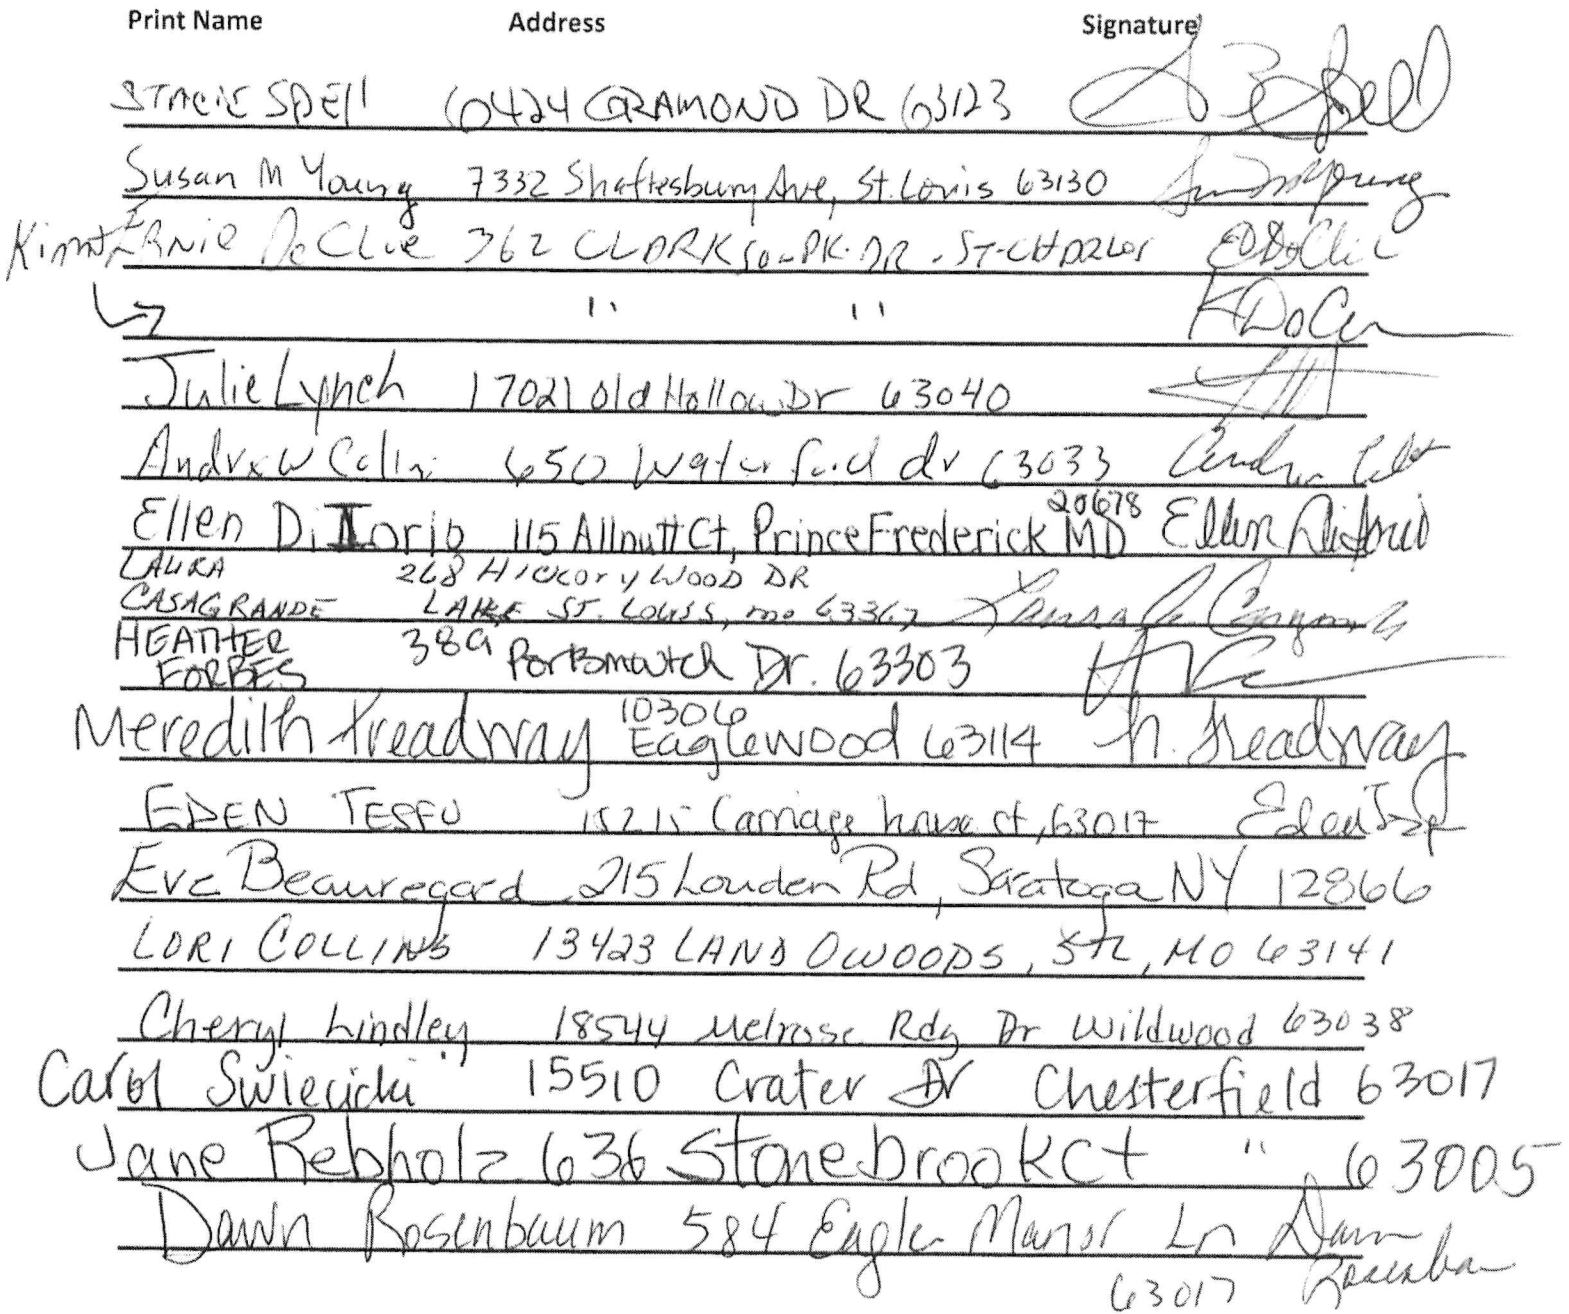 Print Name Address Signature
STACIE SPELL 6424 GRAMOND DR 63123
Susan M Young 7332 Shaftesbury Ave, St. Louis 63130
Ernie DeClue 362 CLARKSON PK. DR. ST-CHARLES
" "
Julie Lynch 17021 Old Hollow Dr 63040
Andrew 650 Waterford dr 63033
20678
Ellen DiIorio 115 Allnutt Ct, Prince Frederick MD Ellen DiIorio
LAURA 268 HICKORY WOOD DR
CASAGRANDE LAKE ST. LOUIS, mo 63367
HEATHER 389 Portsmouth Dr. 63303
FORBES
10306
Meredith Treadway Eaglewood 63114 M. Treadway
EDEN TESFU 15215 Carriage house ct, 63017
Eve Beauregard 215 Louden Rd, Saratoga NY 12866
LORI COLLINS 13423 LAND O WOODS, STL, MO 63141
Cheryl Lindley 18544 Melrose Rdg Dr Wildwood 63038
Carol Swiecicki 15510 Crater Dr Chesterfield 63017
Jane Rebholz 636 Stonebrook Ct " 63005
Dawn Rosenbaum 584 Eagle Manor Ln Dawn
63017 Rosenbaum